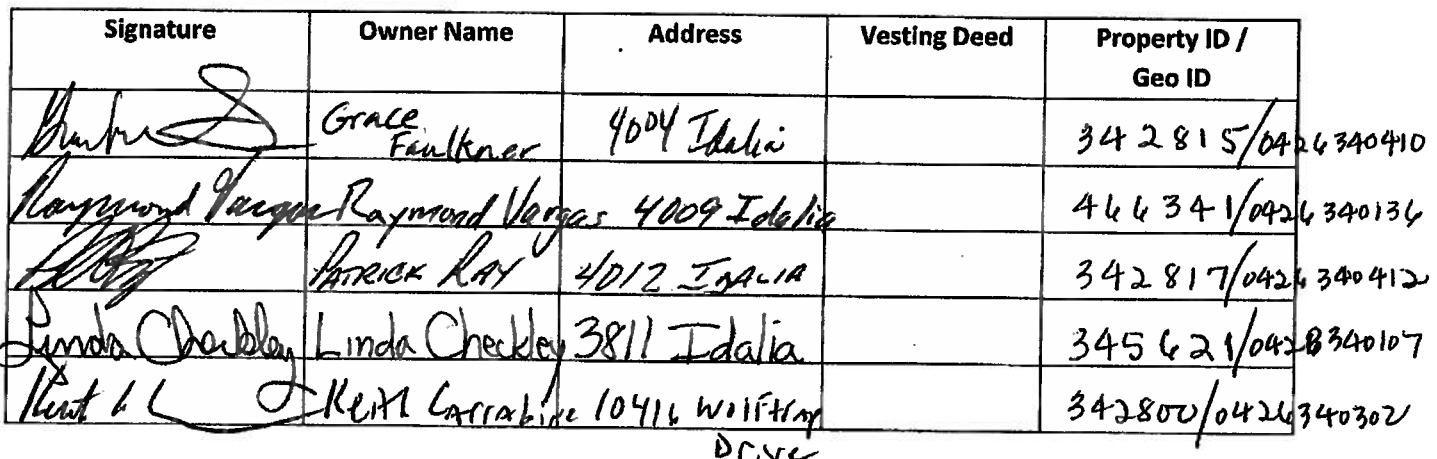 Signature Owner Name Address Vesting Deed Property ID /
Geo ID
Grace
Faulkner 4004 Idalia 342815/0426340410
Raymond Vargas Raymond Vargas 4009 Idalia 466341/0426340136
PATRICK RAY 4012 IDALIA 342817/0426340412
Linda Checkley Linda Checkley 3811 Idalia 345621/0428340107
Keith 10416 Wolftrap 342800/0426340302
Drive